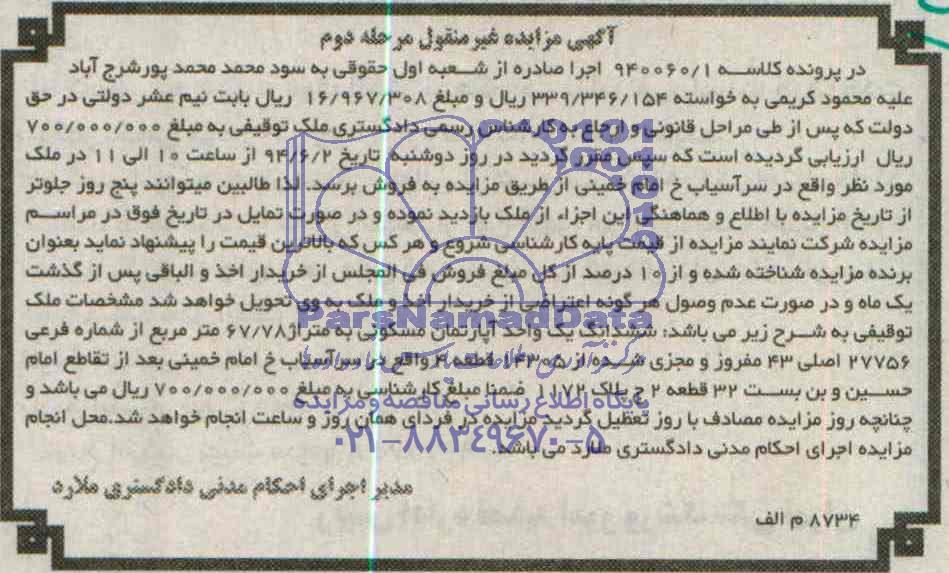 آگهی مزایده غیرمنقول مرحله دوم
در پرونده کلاسه ۹۴۰۰۶۰/۱ اجرا صادره از شعبه اول حقوقی به سود محمد محمد پورشرج آباد
علیه محمود کریمی به خواسته ۳۳۹/۳۴۶/۱۵۴ ریال و مبلغ ۱۶/۹۶۷/۳۰۸ ریال بابت نیم عشر دولتی در حق
دولت که پس از طی مراحل قانونی و ارجاع به کارشناس رسمی دادگستری ملک توقیفی به مبلغ ۷۰۰/۰۰۰/۰۰۰
ریال ارزیابی گردیده است که سپس مقرر گردید در روز دوشنبه تاریخ ۹۴/۶/۲ از ساعت ۱۰ الی ۱۱ در ملک
مورد نظر واقع در سرآسیاب خ امام خمینی از طریق مزایده به فروش برسد. لذا طالبین میتوانند پنج روز جلوتر
از تاریخ مزایده با اطلاع و هماهنگی این اجراء از ملک بازدید نموده و در صورت تمایل در تاریخ فوق در مراسم
مزایده شرکت نمایند مزایده از قیمت پایه کارشناسی شروع و هر کس که بالاترین قیمت را پیشنهاد نماید بعنوان
برنده مزایده شناخته شده و از ۱۰ درصد از کل مبلغ فروش فی المجلس از خریدار اخذ و الباقی پس از گذشت
یک ماه و در صورت عدم وصول هر گونه اعتراضی از خریدار اخذ و ملک به وی تحویل خواهد شد مشخصات ملک
توقیفی به شرح زیر می باشد: ششدانگ یک واحد آپارتمان مسکونی به متراژ ۶۷/۷۸ متر مربع از شماره فرعی
۲۷۷۵۶ اصلی ۴۳ مفروز و مجزی شده از ۱۴۳۰۵ قطعه ۴ واقع در سرآسیاب خ امام خمینی بعد از تقاطع امام
حسین و بن بست ۳۲ قطعه ۲ ج پلاک ۱۱۷۲ ضمنا مبلغ کارشناسی به مبلغ ۷۰۰/۰۰۰/۰۰۰ ریال می باشد و
چنانچه روز مزایده مصادف با روز تعطیل گردید مزایده در فردای همان روز و ساعت انجام خواهد شد.محل انجام
مزایده اجرای احکام مدنی دادگستری ملارد می باشد.
مدیر اجرای احکام مدنی دادگستری ملارد
۸۷۳۴ م الف
ParsNamadData
پایگاه اطلاع رسانی مناقصه و مزایده
۰۲۱-۸۸۳۴۹۶۷۰-۵